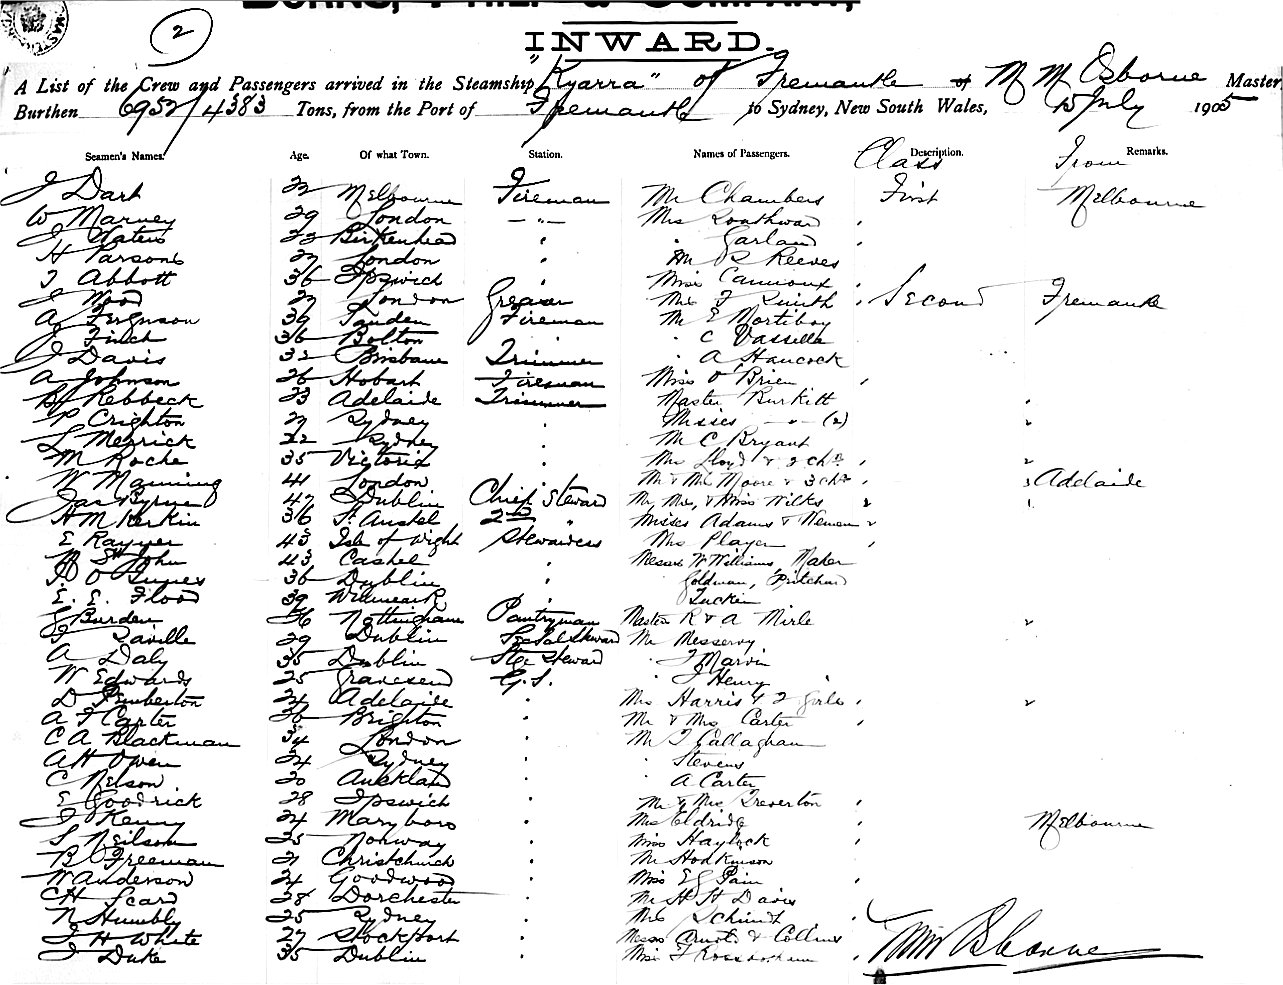 2
INWARD.
A List of the Crew and Passengers arrived in the Steamship "Kyarra" of Fremantle M M Osborne Master
Burthen 6952/4383 Tons, from the Port of Fremantle to Sydney, New South Wales, 15 July 1905
Seamen's Names. Age. Of what Town. Station. Names of Passengers. Description. Class From Remarks.
J Dark 22 Melbourne Fireman Mr Chambers First Melbourne
W Marney 29 London — " — Mrs Southwar
J Waters 22 Birkenhead " Garland
H Parsons 27 London " Mr R Reeves
T Abbott 36 Ipswich " Miss
J Wood 27 London Greaser Mrs F Smith Second Fremantle
A Ferguson 39 Fireman Mr E Mortiboy
J Finch 36 Bolton " C Vassella
J Davis 32 Brisbane Trimmer " A Hancock
A Johnson 26 Hobart Fireman Miss O'Brien
H Rebbeck 23 Adelaide Trimmer Master Burkitt
P Crighton 27 Sydney " Misses — " — (2)
L Merrick 22 Sydney " Mr C Bryant
M Roche 35 Victoria " Mrs Lloyd & 2 Chn
W Manning 41 London " Mr & Mrs Moore & 3 Chn Adelaide
Jas Byrne 47 Dublin Chief Steward Mr, Mrs, & Miss Wilks
H M Kerkin 36 St Austel 2nd " Misses Adams &
E Rayner 43 Isle of Wight Stewardess Mrs Player
M St John 43 Cashel " Messrs W Williams, Maker
36 Dublin " Goldman, Pritchard
E. E. Flood 39 " Luckin
G Burden 36 Nottingham Pantryman Masters R & A Mirle
F Saville 29 Dublin Steward Mr Messervy
A Daly 35 Dublin Stge Steward " J Marvin
W Edwards 25 Gravesend G.S. " J Henry
D Pemberton 24 Adelaide " Mrs Harris & 2 girls
A J Carter 20 Brighton " Mr & Mrs Carter
C A Blackman 34 London " Mr T Callaghan
A H Owen 24 Sydney " Stevens
C Nelson 20 Auckland " A Carter
E Goodrick 28 Ipswich " Mr & Mrs Treverton
J Kenny 24 Maryboro " Mrs Eldridge Melbourne
S Neilson 25 Norway " Miss Haylock
B Freeman 21 Christchurch " Mr Hodkinson
W Anderson 24 Goodwood " Miss E G Pain
C H Scard 28 Dorchester " Mr H H Davis
N Humbly 25 Sydney " Mrs Schmidt
J H White 27 Stockport " Messrs Arnold & Collins
J Duke 35 Dublin " Miss F
M M Osborne